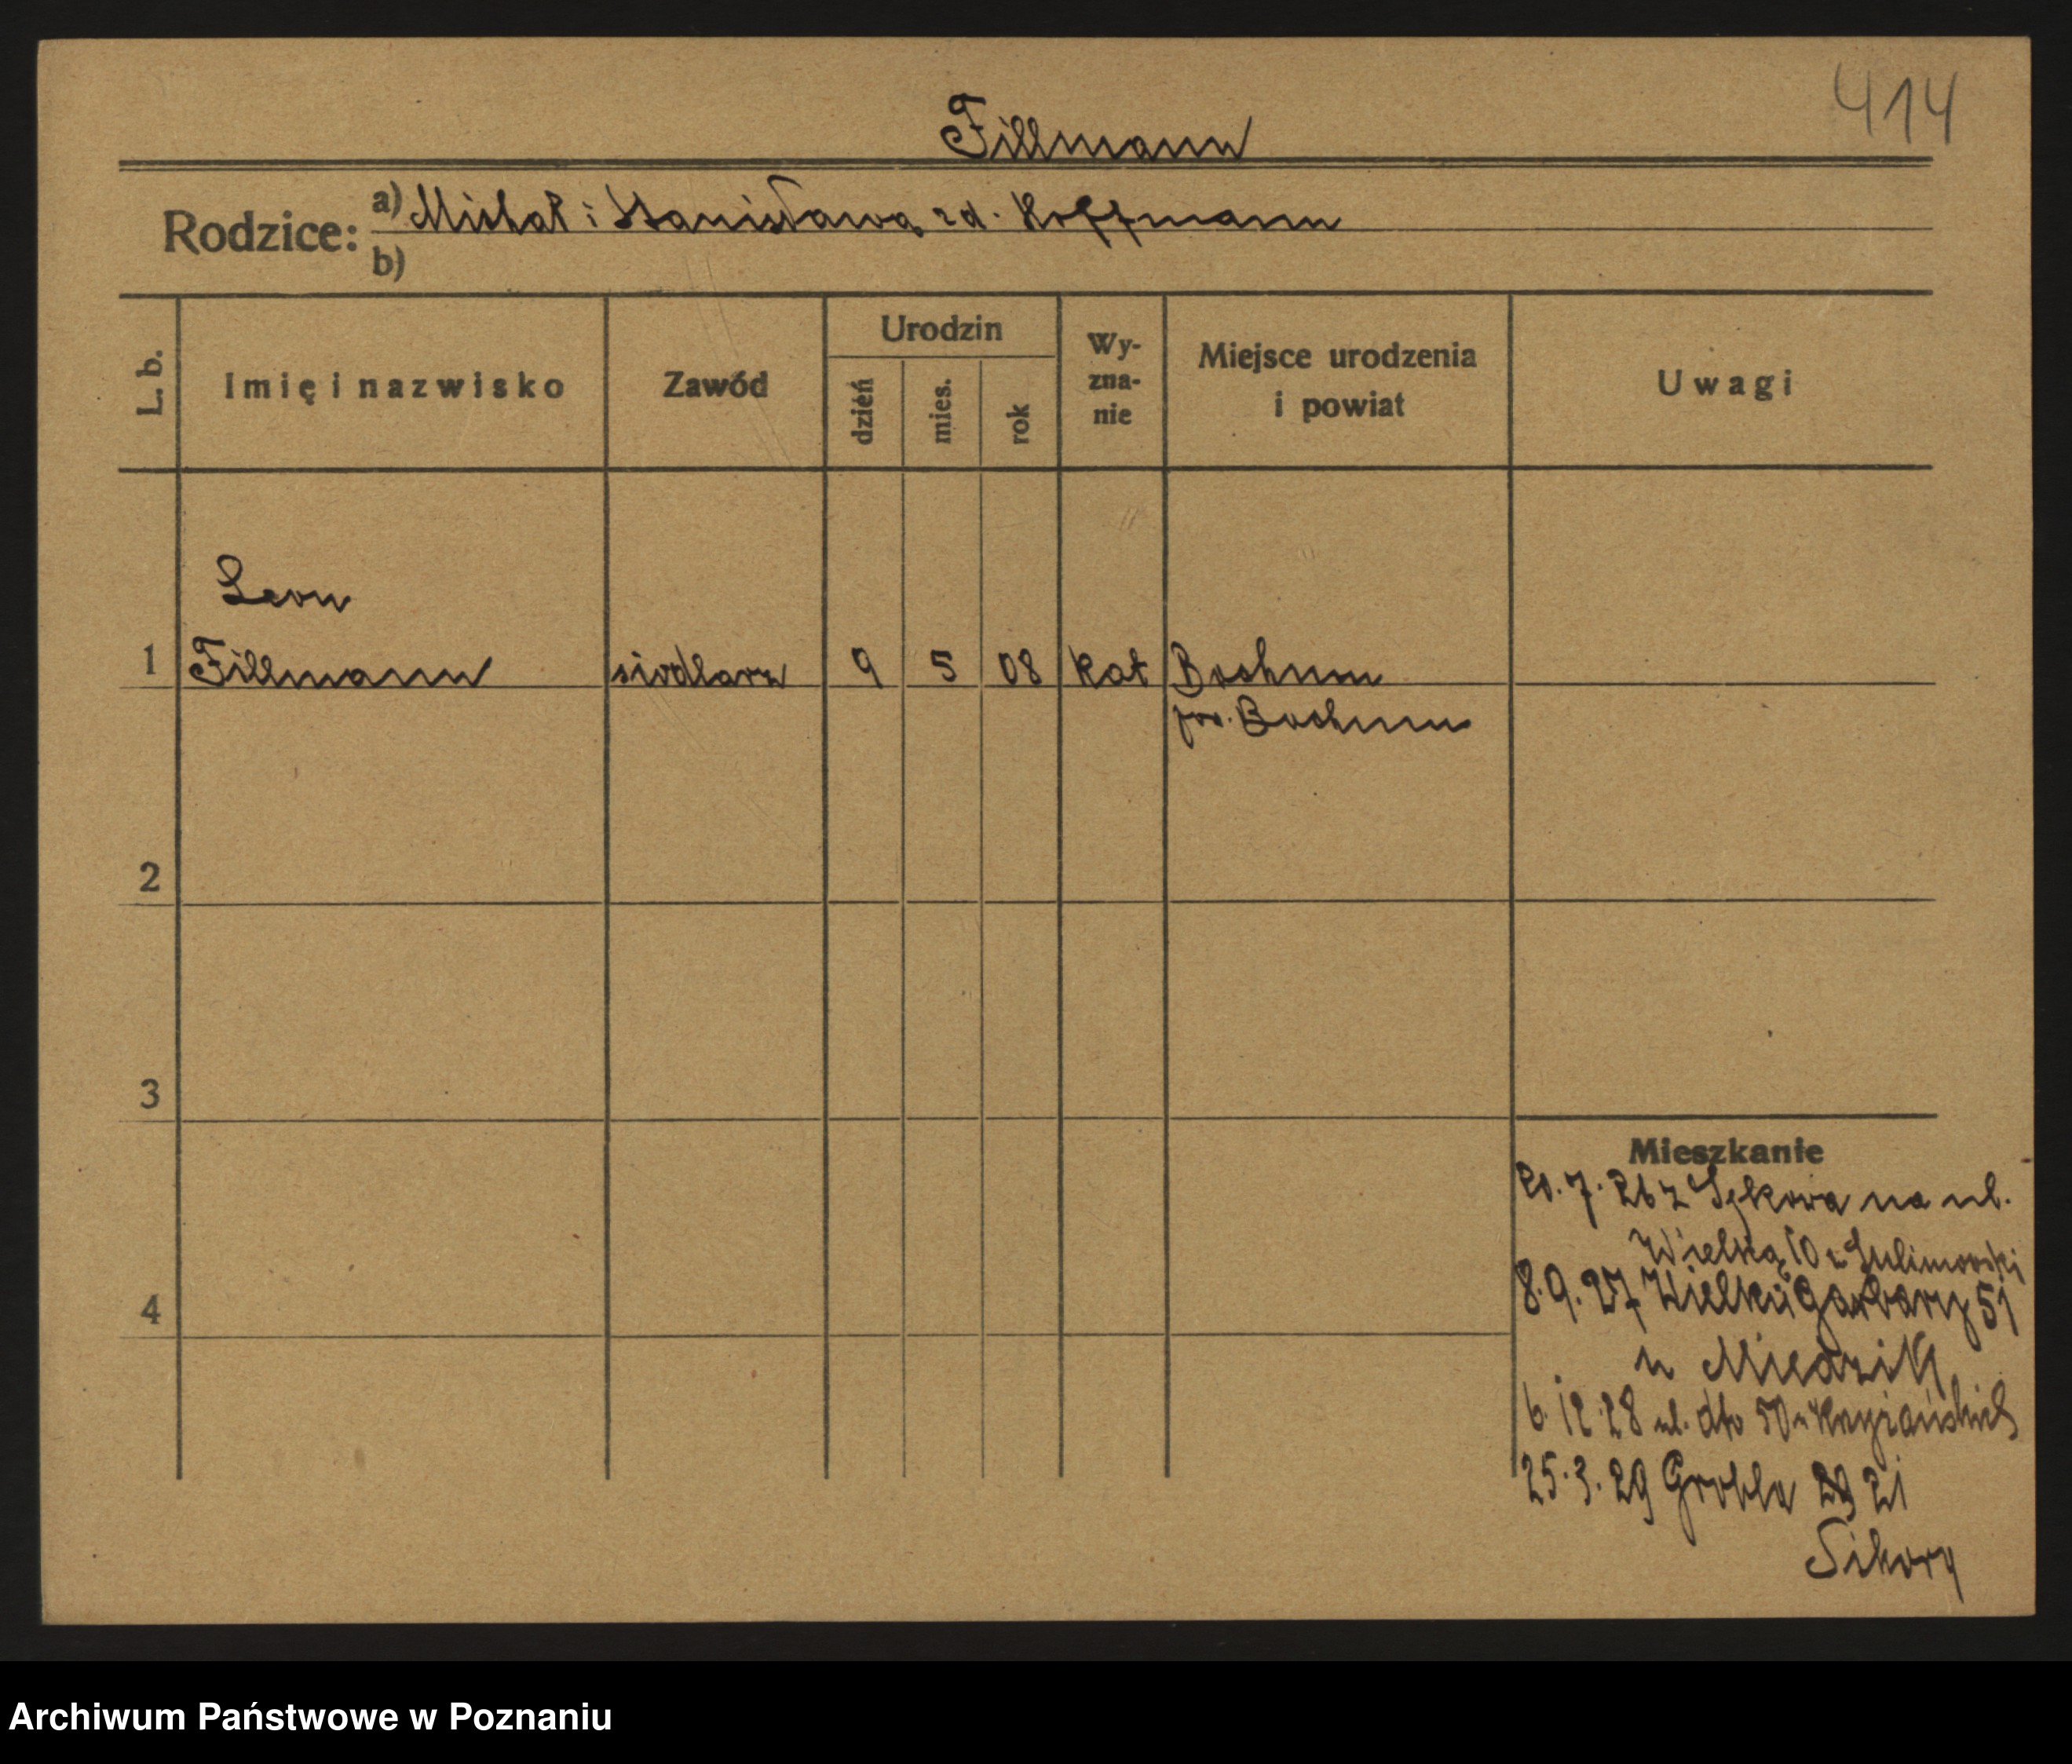 414
Fillmann
Rodzice: a) Michał i Stanisława zd. Hoffmann
b)
L. b. Imię i nazwisko Zawód Urodzin dzień mies. rok Wy-zna-nie Miejsce urodzenia i powiat Uwagi
Leon
1 Fillmann siodlarz 9 5 08 kat Bochum
pow. Bochum
2
3
Mieszkanie
20.7.26 z Sękowa na ul.
Wielką 10 u Sulimowski
4
8.9.27 Wielkie Garbary 51
u
6.12.28 ul. dto 50 u
25.3.29 Grobla 29 21
Sikory
Archiwum Państwowe w Poznaniu